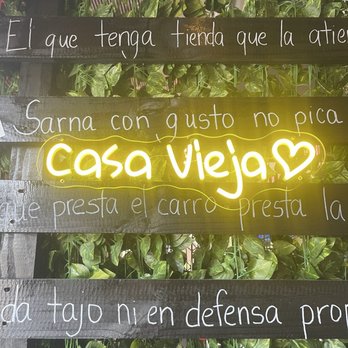 El que tenga tienda que la atie
Sarna con gusto no pica
Casa Vieja
que presta el carro presta la
da tajo ni en defensa prop